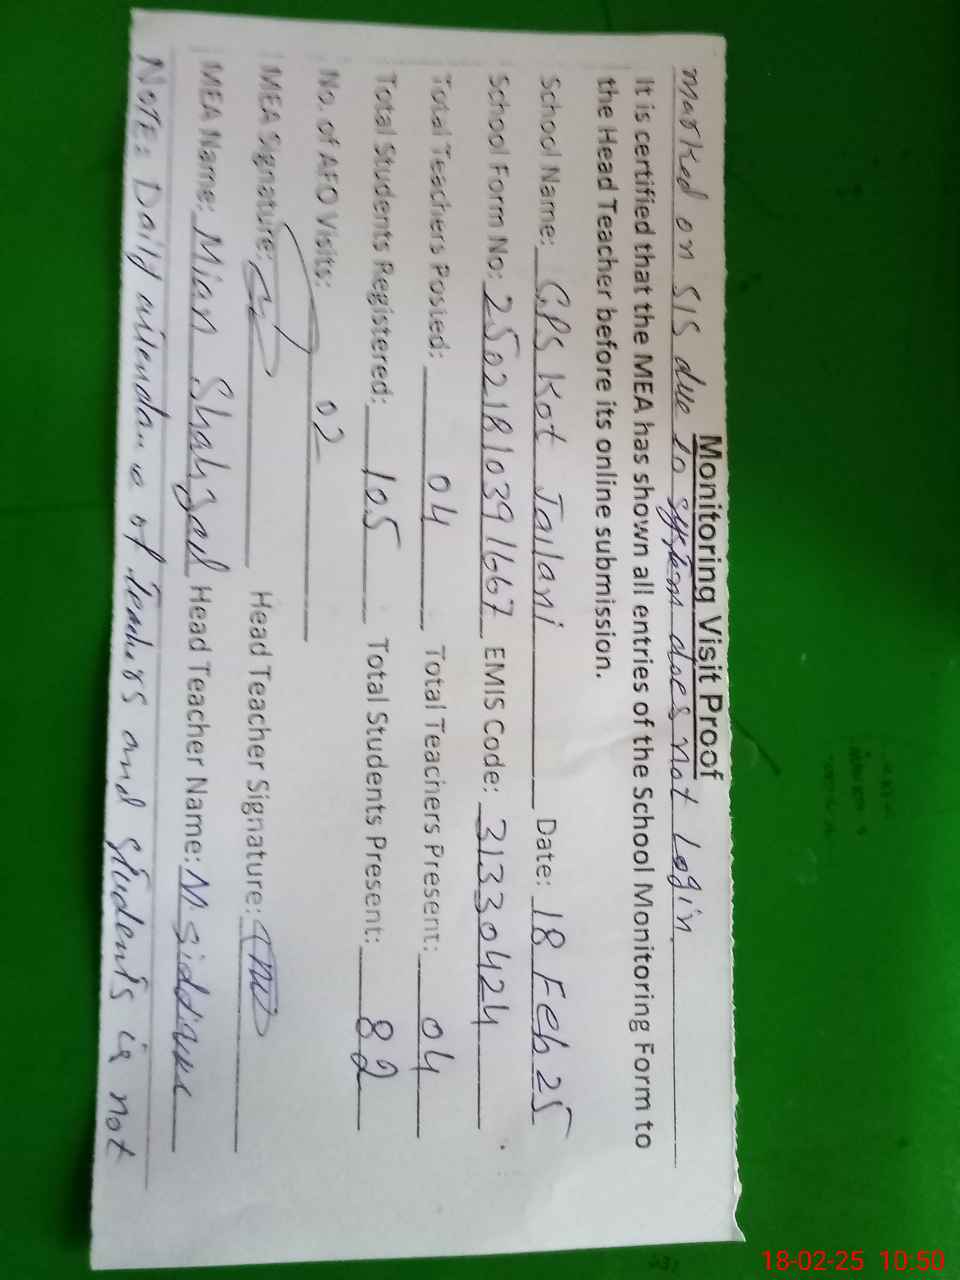 Monitoring Visit Proof
marked on SIS due to system does not Login.
It is certified that the MEA has shown all entries of the School Monitoring Form to
the Head Teacher before its online submission.
School Name: GPS Kot Jailani Date: 18 Feb 25
School Form No: 2502181039 1667 EMIS Code: 31330424
Total Teachers Posted: 04 Total Teachers Present: 04
Total Students Registered: 105 Total Students Present: 82
No. of AFO Visits: 02
MEA Signature: Head Teacher Signature:
MEA Name: Mian Shahzad Head Teacher Name: M. Siddique
NOTE: Daily attendance of teachers and students is not
18-02-25 10:50